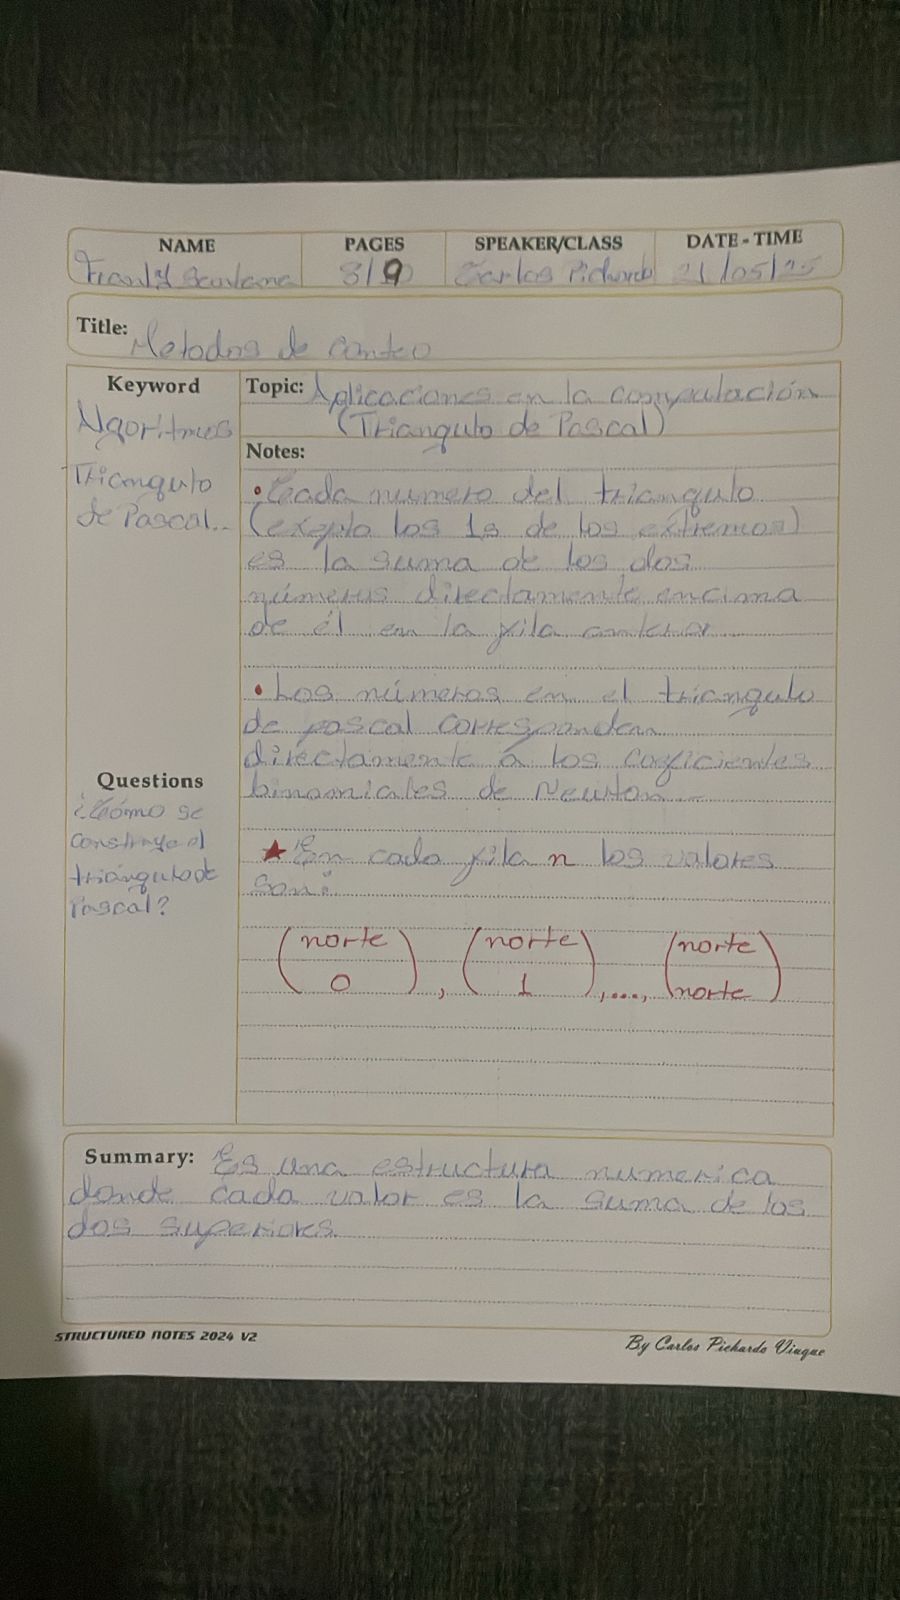 NAME PAGES SPEAKER/CLASS DATE-TIME
8/9 Carlos Pichardo 21/05/25
Title: Metodos de conteo
Keyword
Algoritmos
Triangulo
de Pascal..
Topic: Aplicaciones en la computación
(Triangulo de Pascal)
Notes:
• Cada numero del triangulo
(exepto los 1s de los extremos)
es la suma de los dos
números directamente encima
de él en la fila anterior
• Los números en el triangulo
de pascal corresponden
directamente a los coeficientes
binomiales de Newton
Questions
¿Cómo se
construye el
triángulo de
Pascal?
★ En cada fila n los valores
son:
(norte 0), (norte 1), ..., (norte norte)
Summary: Es una estructura numerica
donde cada valor es la suma de los
dos superiores.
STRUCTURED NOTES 2024 V2
By Carlos Pichardo Viuque